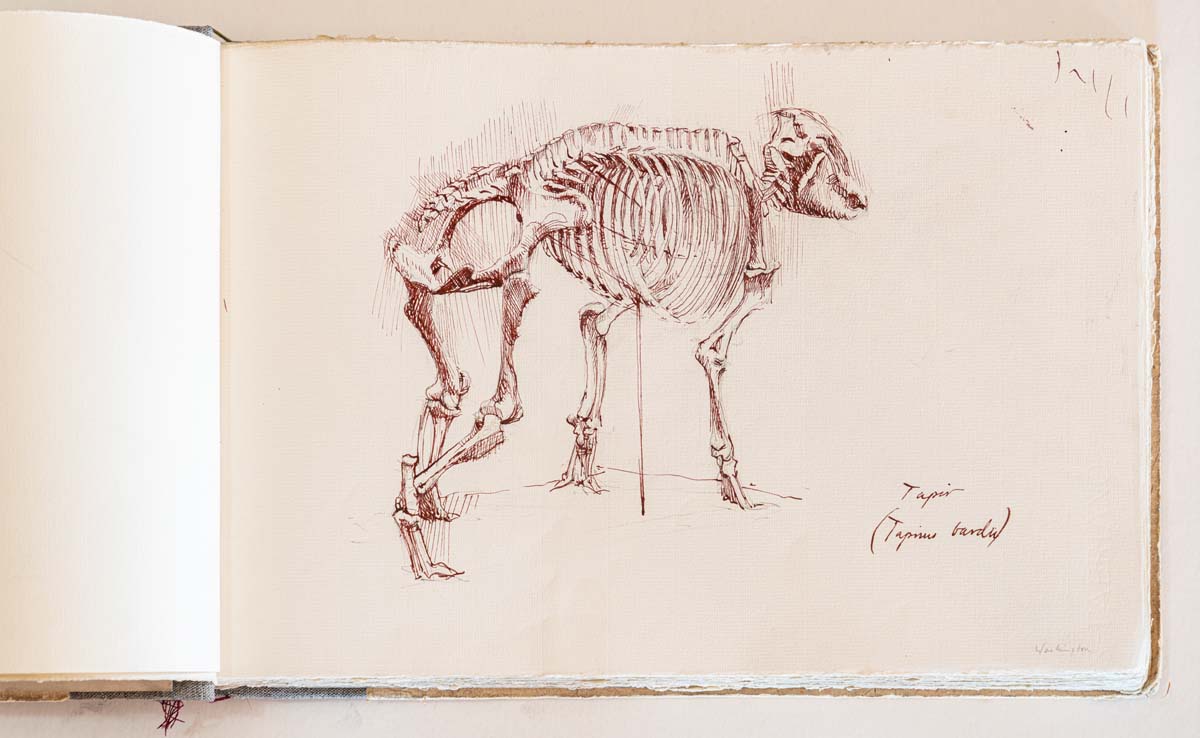 Tapir
(Tapirus bardii)
Washington